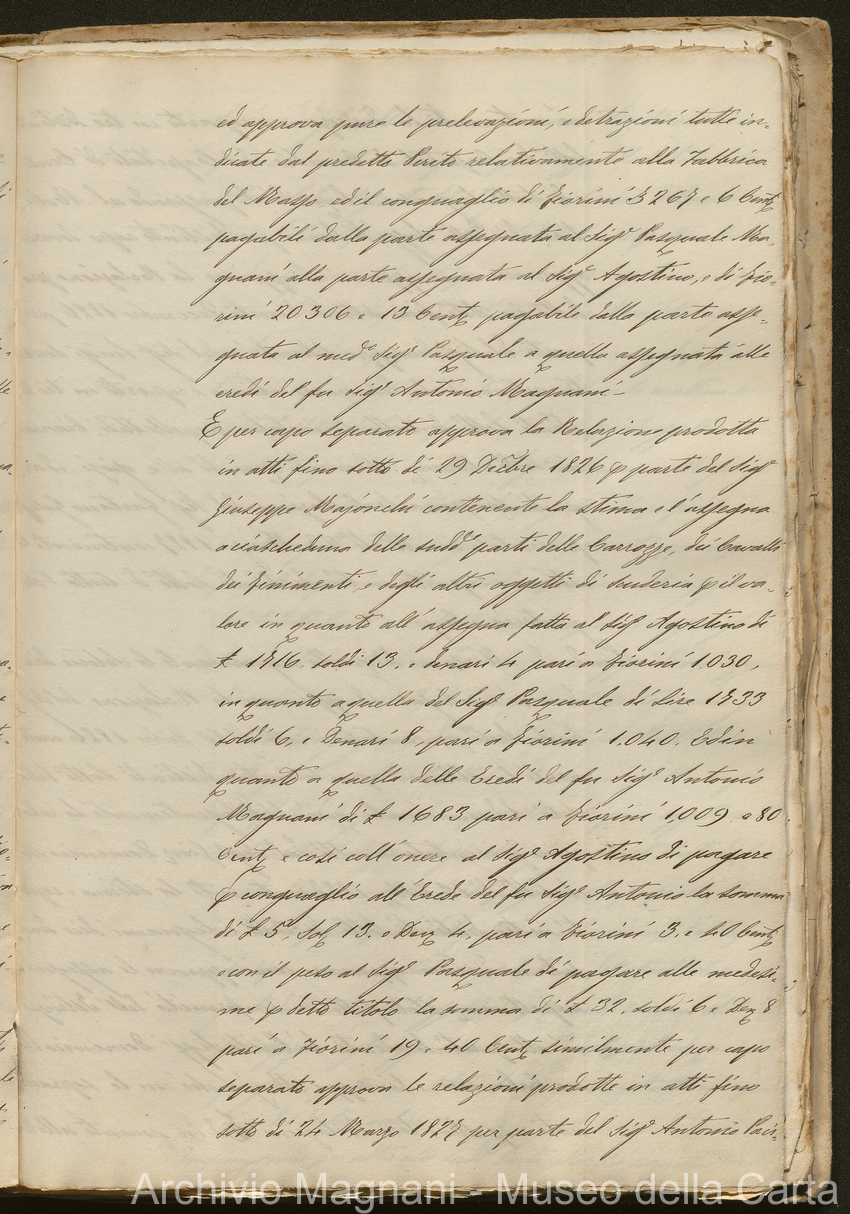 ed approva pure le prelevazioni, e detrazioni tutte in=
dicate dal predetto Perito relativamente alla Fabbrica
del Masso ed il conguaglio di Fiorini 3267 e 6 Cent.
pagabili dalla parte assegnata al Sig.r Pasquale Ma=
gnani alla parte assegnata al Sig.r Agostino, e di Fio=
rini 20306 e 13 Cent. pagabile dalla parte asse=
gnata al med.o Sig.r Pasquale a quella assegnata alle
eredi del fu Sig.r Antonio Magnani –
E per capo separato approva la Relazione prodotta
in atti fino sotto dì 29 Dicbre 1826 p parte del Sig.r
Giuseppe Majonchi contenente la stima e l'assegna
a ciascheduna delle sudd.e parti delle Carrozze, dei Cavalli
dei Finimenti, e degli altri oggetti di scuderia p il va=
lore in quanto all'assegna fatta al Sig.r Agostino di
£ 1716. soldi 13. e denari 4 pari a Fiorini 1.030,
in quanto a quella del Sig.r Pasquale di Lire 1733
soldi 6, e Denari 8, pari a Fiorini 1.040. Ed in
quanto a quella delle Eredi del fu Sig.r Antonio
Magnani di £ 1683 pari a Fiorini 1,009 e 80
Cent. e così coll'onere al Sig.r Agostino di pagare
p conguaglio all'Erede del fu Sig.r Antonio la somma
di £ 5, Sol. 13. e Den. 4. pari a Fiorini 3. e 40 Cent.
e con il peso al Sig.r Pasquale di pagare alle medesi=
me p detto titolo la somma di £ 32. soldi 6 e Den. 8
pari a Fiorini 19 e 40 Cent. similmente per capo
separato approva le relazioni prodotte in atti fino
sotto dì 24 Marzo 1827 per parte del Sig.r Antonio Paci=
Archivio Magnani - Museo della Carta